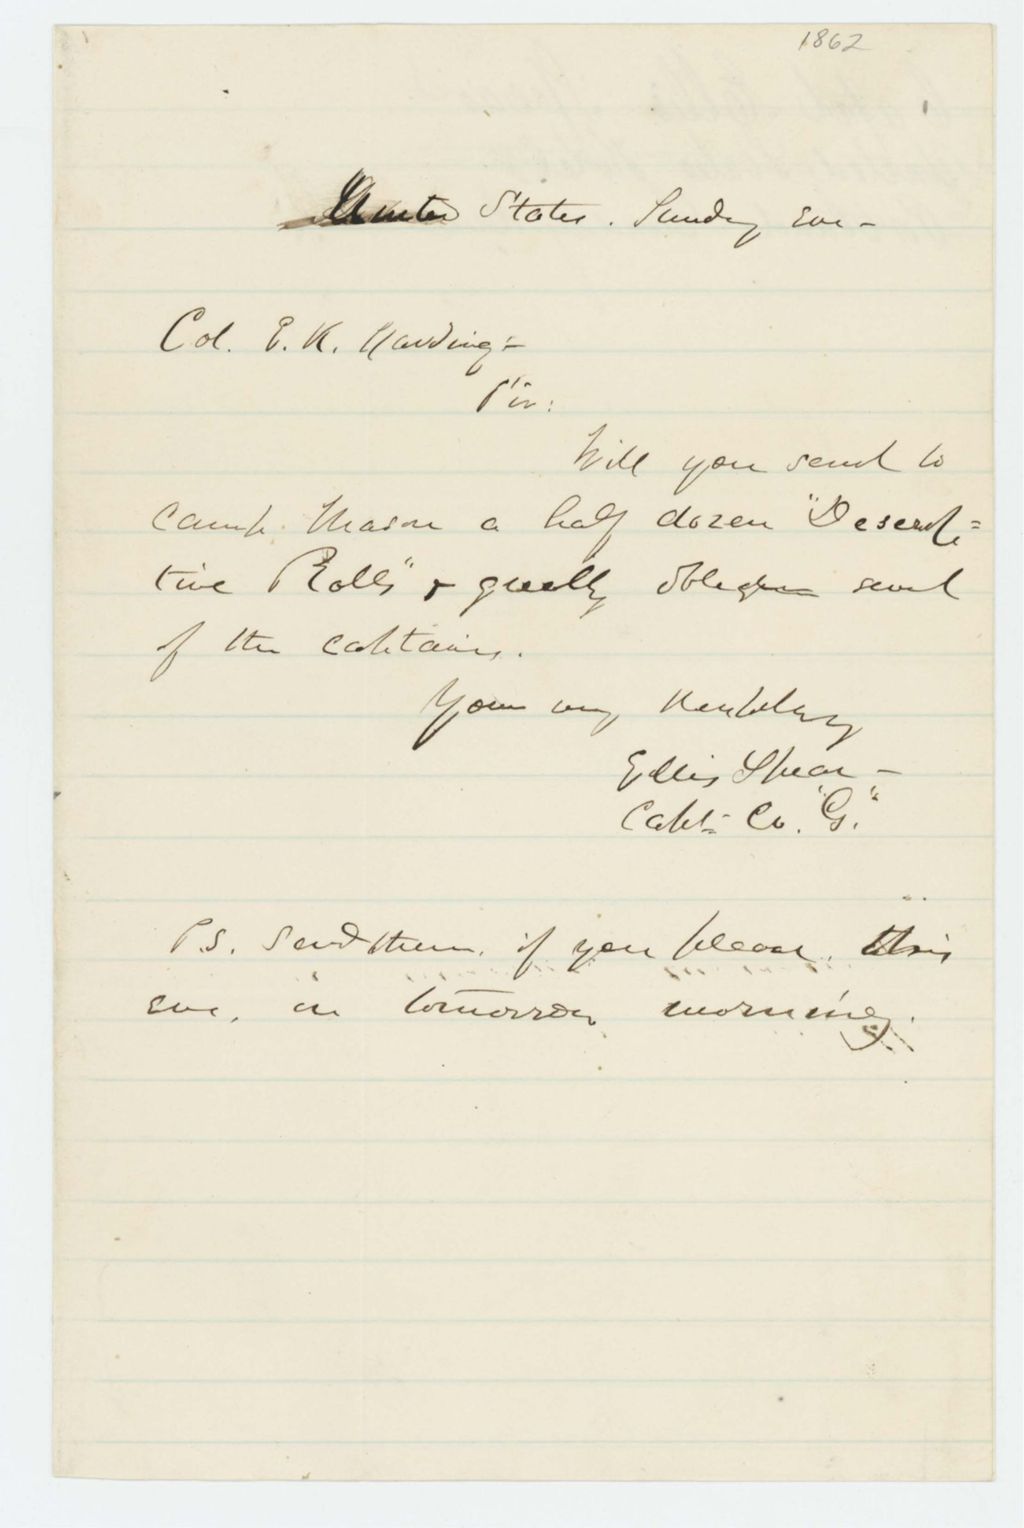 1862
United States. Sunday eve -
Col. E. K. Harding -
Sir:
Will you send to
Camp Mason a half dozen "Descrip=
tive Rolls" & greatly oblige several
of the captains.
Your very Humbly
Ellis Spear -
Capt= Co. "G."
P.S. Send them, if you please, this
eve, or tomorrow morning.